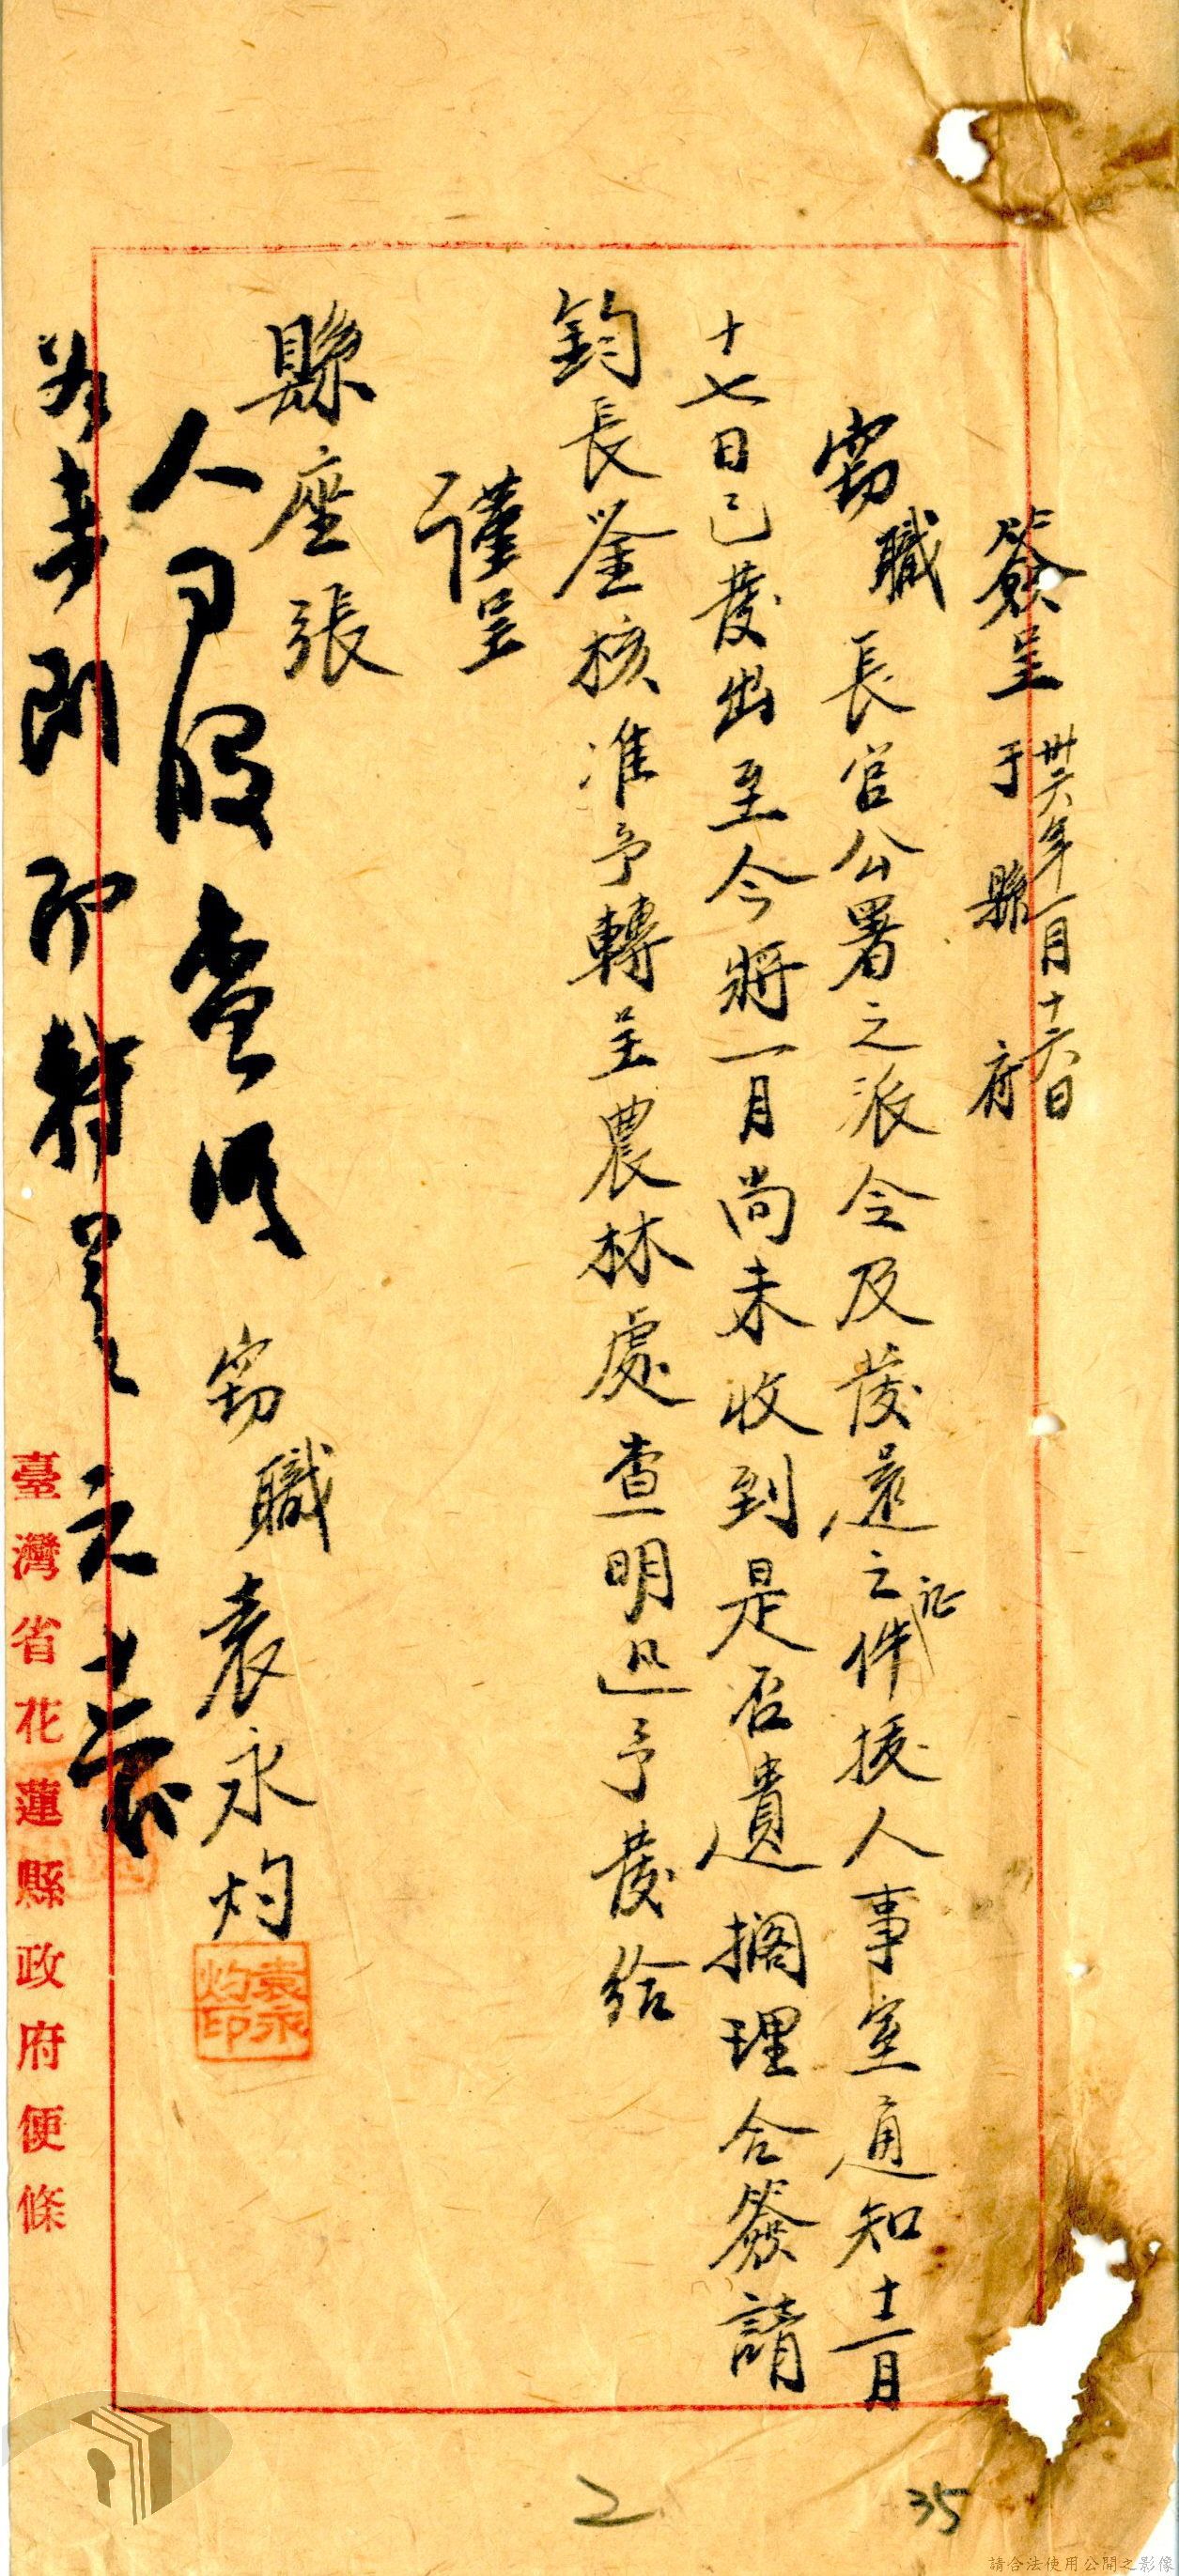 簽呈 卅六年一月十六日
于縣府
竊職長官公署之派令及發還之証件據人事室通知十二月
十七日已發出至今將一月尚未收到是否遺擱理合簽請
鈞長鉴核准予轉呈農林處查明迅予發給
謹呈
縣座張
竊職袁永灼
袁永灼印
人事股查明
即
臺灣省花蓮縣政府便條
2
35
請合法使用公開之影像